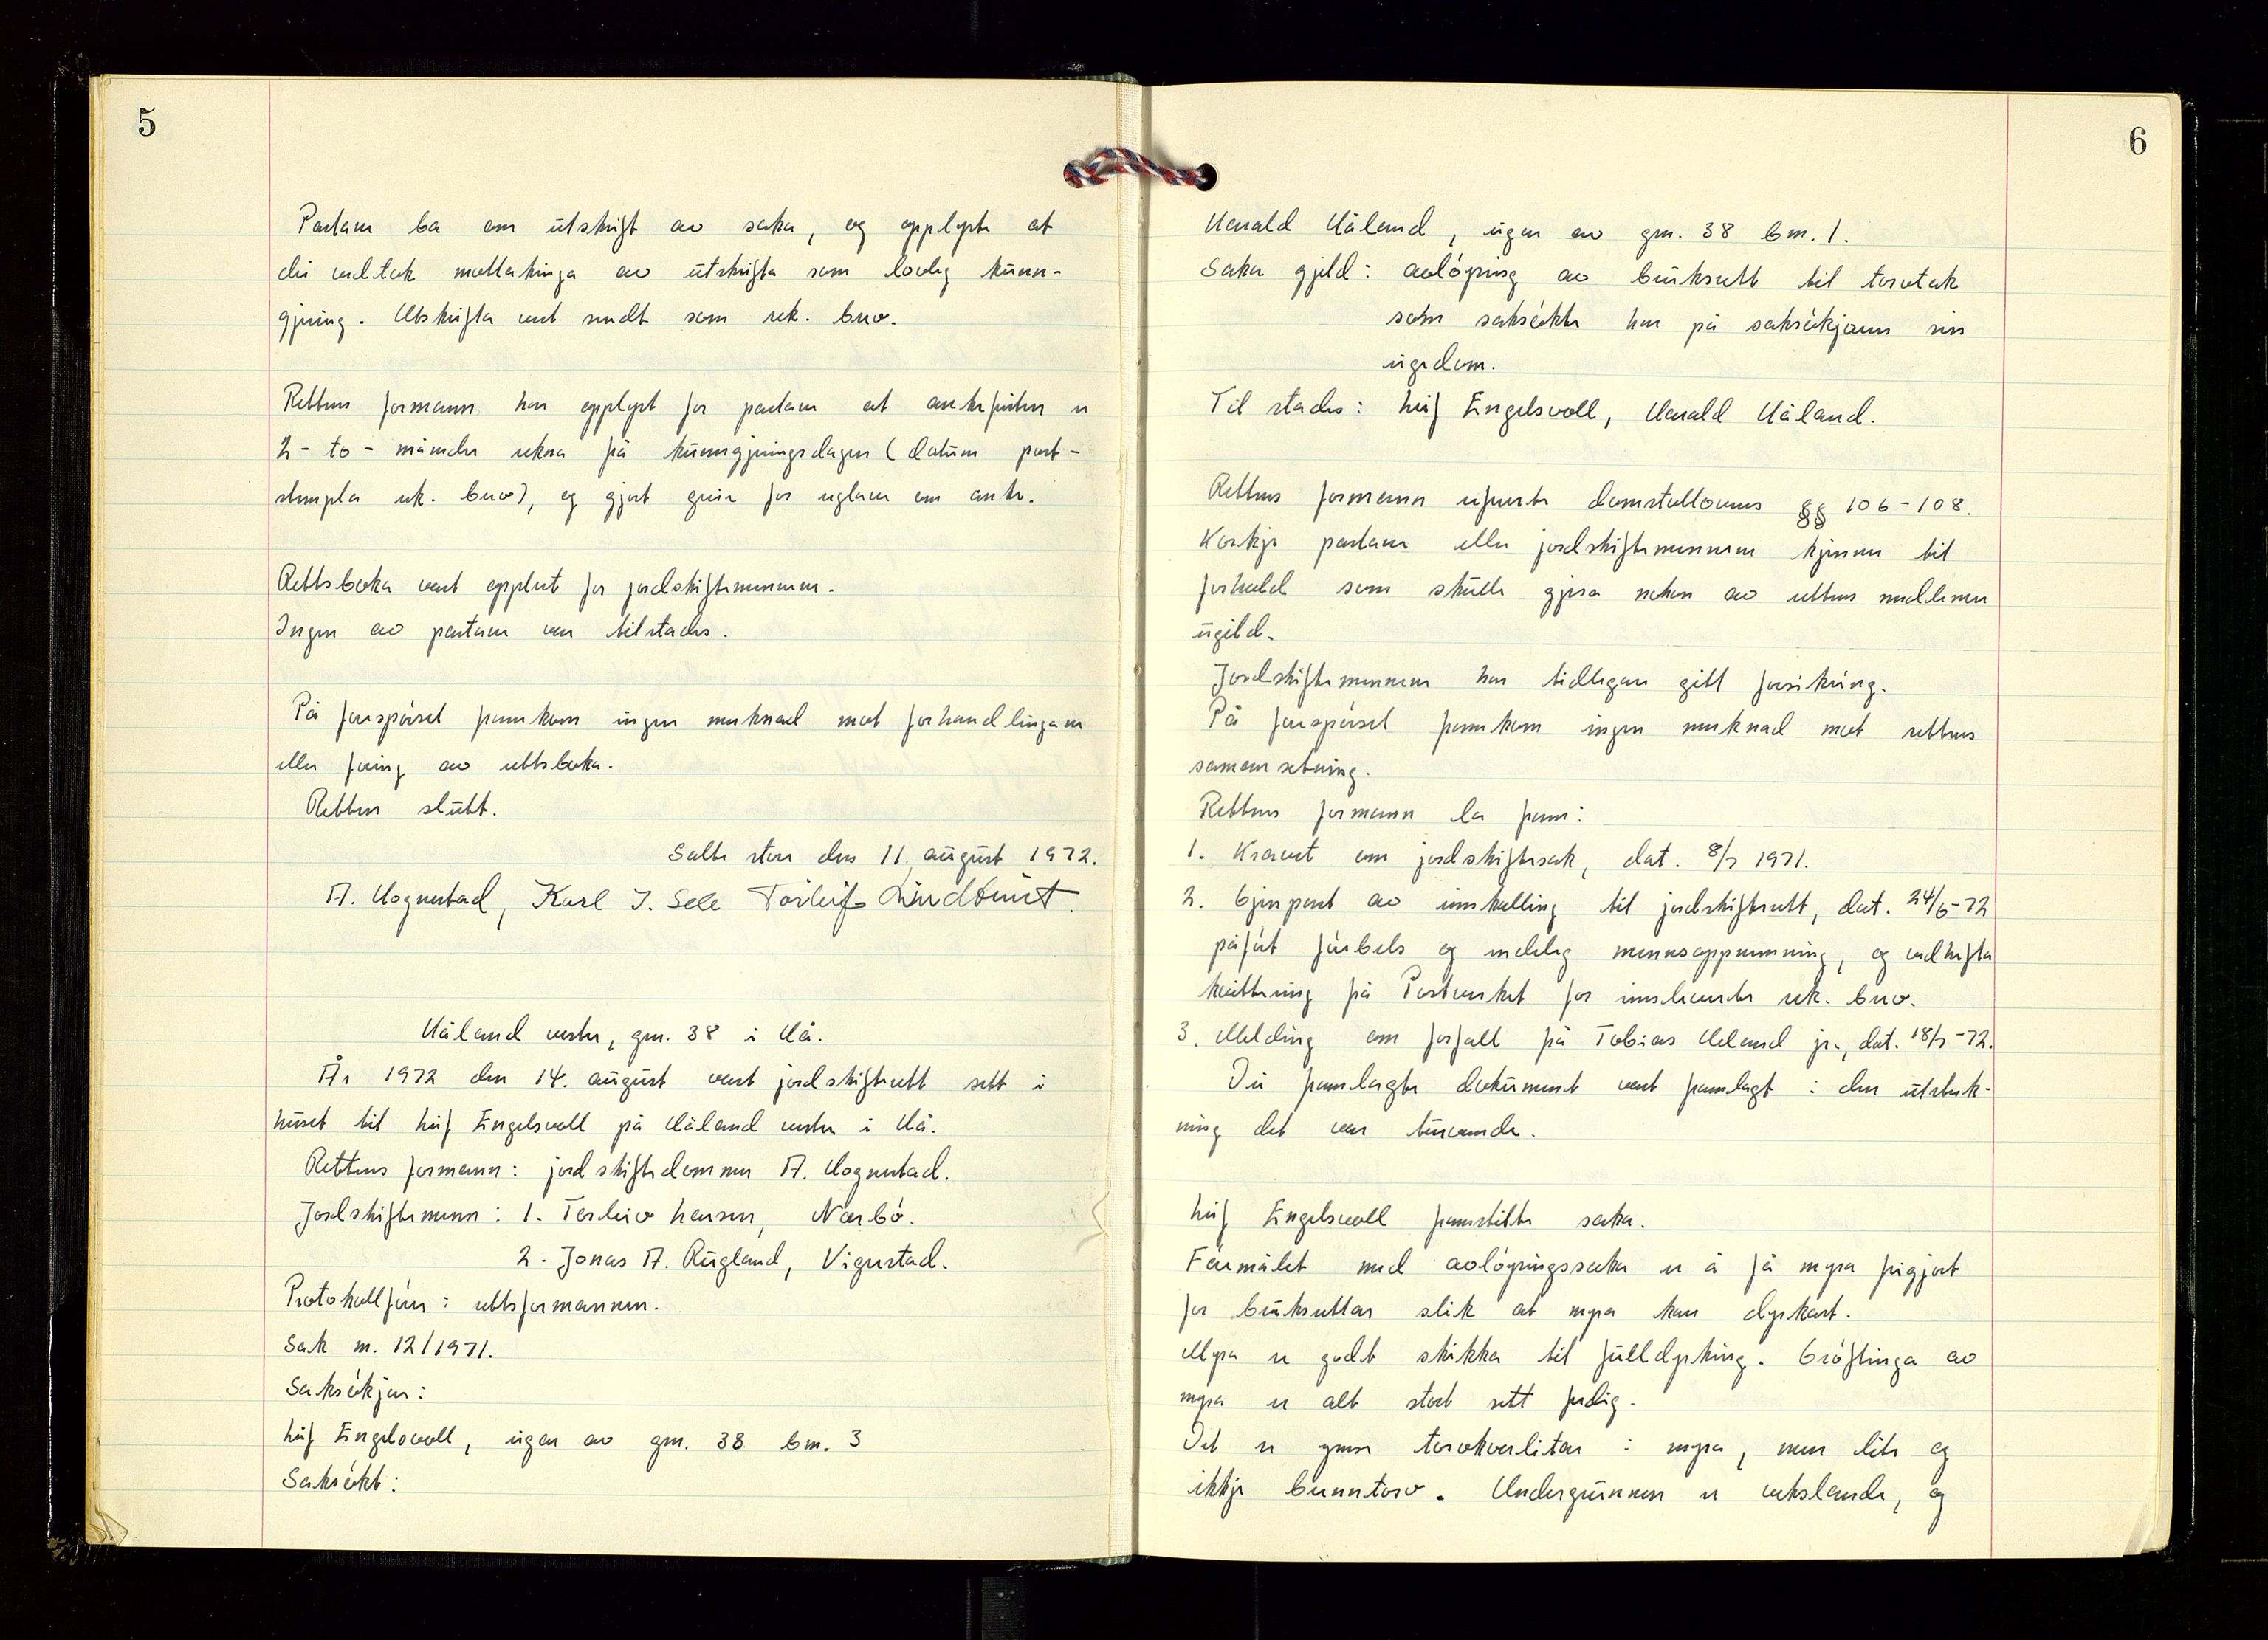 5
Partane ba om utskrift av saka, og opplyste at
dei vedtok mottakinga av utskrifta som lovleg kunn-
gjering. Utskrifta vert sendt som rek. brev.
Rettens formann har opplyst for partane at ankefristen er
2 - to - månader rekna frå kunngjeringsdagen (datum post-
stempla rek. brev), og gjort greie for reglane om anke.
Rettsboka vart opplest for jordskiftemennene.
Ingen av partane var tilstades.
På førespørsel framkom ingen merknad mot forhandlingane
eller føring av rettsboka.
Retten slutt.
Salte stou den 11. august 1972.
A. Hognestad, Karl J. Sele Torleif Lindtveit.
Håland vestre, gnr. 38 i Hå.
År 1972 den 14. august vart jordskifterett sett i
huset til Leif Engelsvoll på Håland vestre i Hå.
Rettens formann: jordskiftedommer A. Hognestad.
Jordskiftemenn: 1. Torleiv Hansen, Nærbø.
2. Jonas A. Rugland, Vigrestad.
Protokollførar: rettsformannen.
Sak nr. 12/1971.
Saksøkjar:
Leif Engelsvoll, eigar av gnr. 38 bnr. 3
Saksøkt:
6
Harald Håland, eigar av gnr. 38 bnr. 1.
Saka gjeld: avløysing av bruksrett til torvtak
som saksøkte har på saksøkjaren sin
eigedom.
Til stades: Leif Engelsvoll, Harald Håland.
Rettens formann refererte domstollovens §§ 106-108.
Korkje partane eller jordskiftemennene kjenner til
forhold som skulle gjera nokon av rettens medlemer
ugild.
Jordskiftemennene har tidlegare gitt forsikring.
På førespørsel framkom ingen merknad mot rettens
samansetning.
Rettens formann la fram:
1. Kravet om jordskiftesak, dat. 8/7 1971.
2. Gjenpart av innkalling til jordskifterett, dat. 24/6-72
påført førebels og endeleg mennsoppnemning, og vedhefta
kvittering frå Postverket for innleverte rek. brev.
3. Melding om forfall frå Tobias Meland jr., dat. 18/7-72.
Dei framlagte dokument vart framlagt i den utstrek-
ning det var turvande.
Leif Engelsvoll framstilte saka.
Føremålet med avløysingssaka er å få myra frigjort
for bruksrettar slik at myra kan dyrkast.
Myra er godt skikka til fulldyrking. Grøftinga av
myra er alt stort sett ferdig.
Det er ymse torvkvalitetar i myra, men lite og
ikkje brenntorv. Undergrunnen er vekslande, og